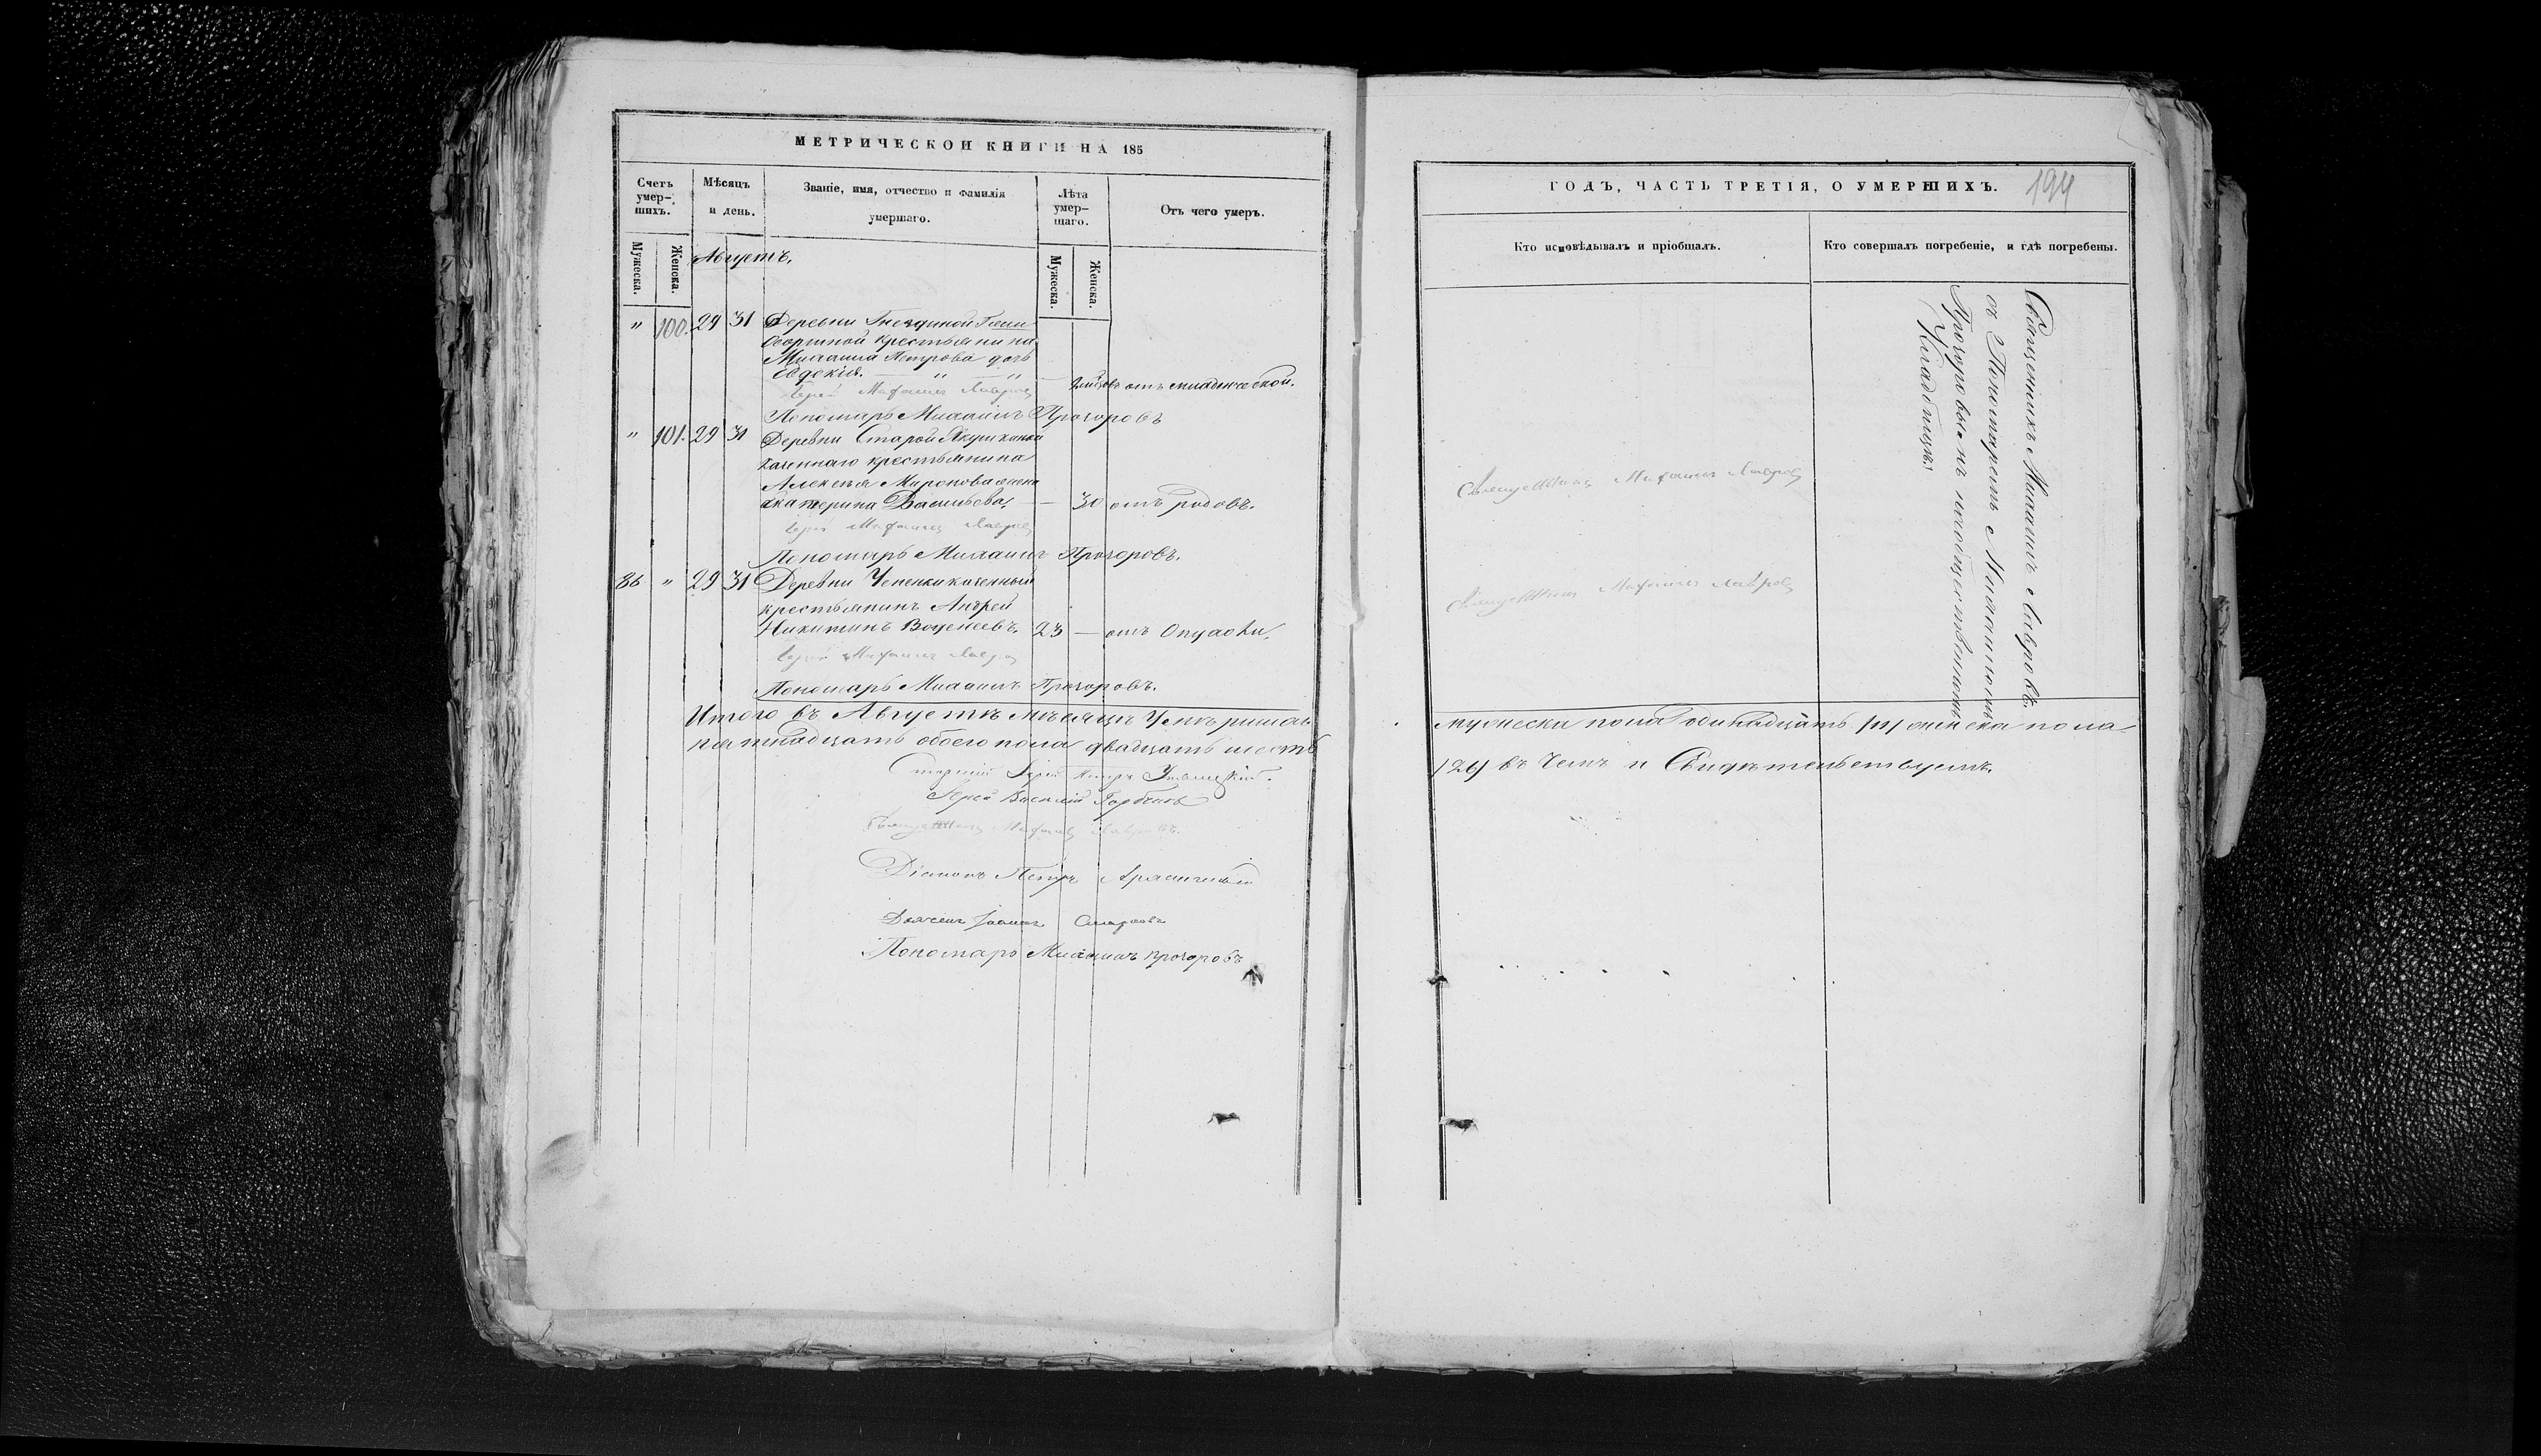 МЕТРИЧЕСКОЙ КНИГИ НА 185
Счетъ умер-шихъ.
Мѣсяцъ и день.
Званіе, имя, отчество и фамилія умершаго.
Лѣта умер-шаго.
Отъ чего умеръ.
Мужеска.
Женска.
Августъ.
Мужеска.
Женска.
" 100. 29 31 Деревни
крестьянина
Михаила Петрова дочь
Евдокія. — " — "
отъ младенческой.
Іерей Михаилъ Лавровъ
Пономарь Михаилъ Прохоровъ
" 101. 29 31 Деревни Старой Якушкинки
казеннаго крестьянина
Алексѣя Миронова жена
Екатерина Васильева. — 30 отъ родовъ.
Іерей Михаилъ Лавровъ
Пономарь Михаилъ Прохоровъ.
86 " 29 31 Деревни Чепенки казенный
крестьянинъ Андрей
Никитинъ 23 — отъ Опухоли.
Іерей Михаилъ Лавровъ
Пономарь Михаилъ Прохоровъ.
Итого въ Августѣ мѣсяцѣ Умѣршихъ
пятнадцать обоего пола двадцать шесть
Старшій Іерей Петръ
Іерей Василій
Священникъ Михаилъ Лавровъ.
Діаконъ Петръ
Дьячекъ Іоаннъ Смирновъ
Пономарь Михаилъ Прохоровъ
ГОДЪ, ЧАСТЬ ТРЕТІЯ, О УМЕРШИХЪ.
194
Кто исповѣдывалъ и пріобщалъ.
Кто совершалъ погребеніе, и гдѣ погребены.
Священникъ Михаилъ Лавровъ
Священникъ Михаилъ Лавровъ
Священникъ Михаилъ Лавровъ.
съ Пономаремъ Михаиломъ
Прохоровымъ на общественномъ
Кладбищѣ.
мужеска пола одинадцать /11/ женска пола
/26/ въ Чемъ и Свидѣтельствуемъ.